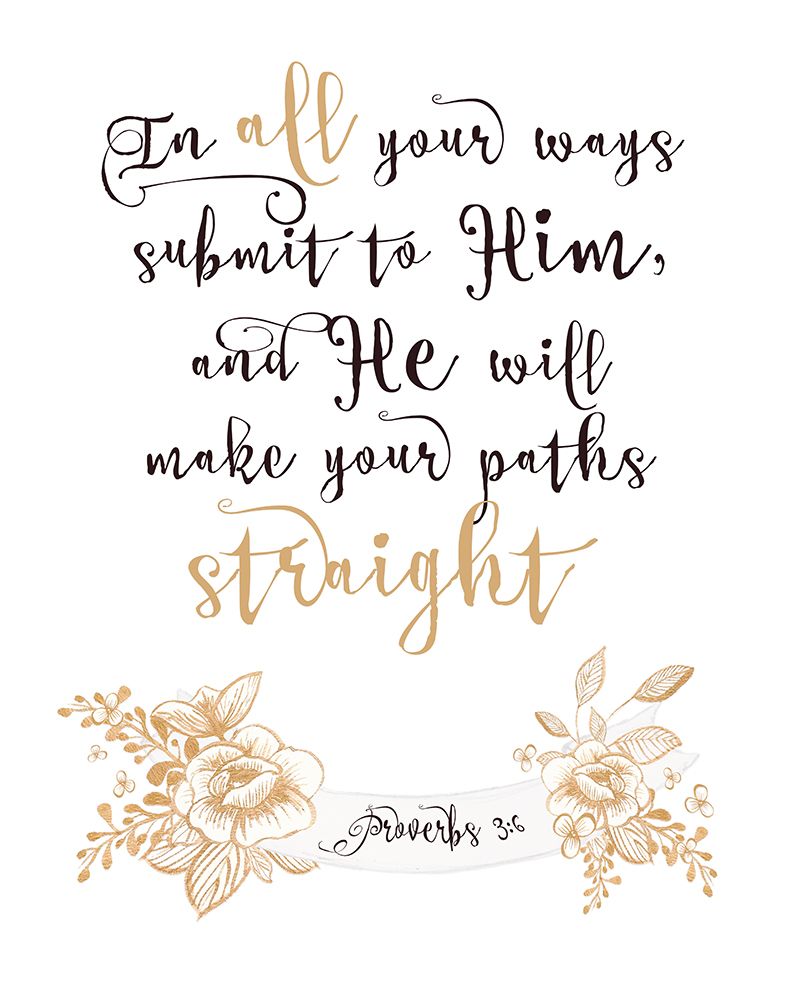 In all your ways
submit to Him,
and He will
make your paths
straight
Proverbs 3:6